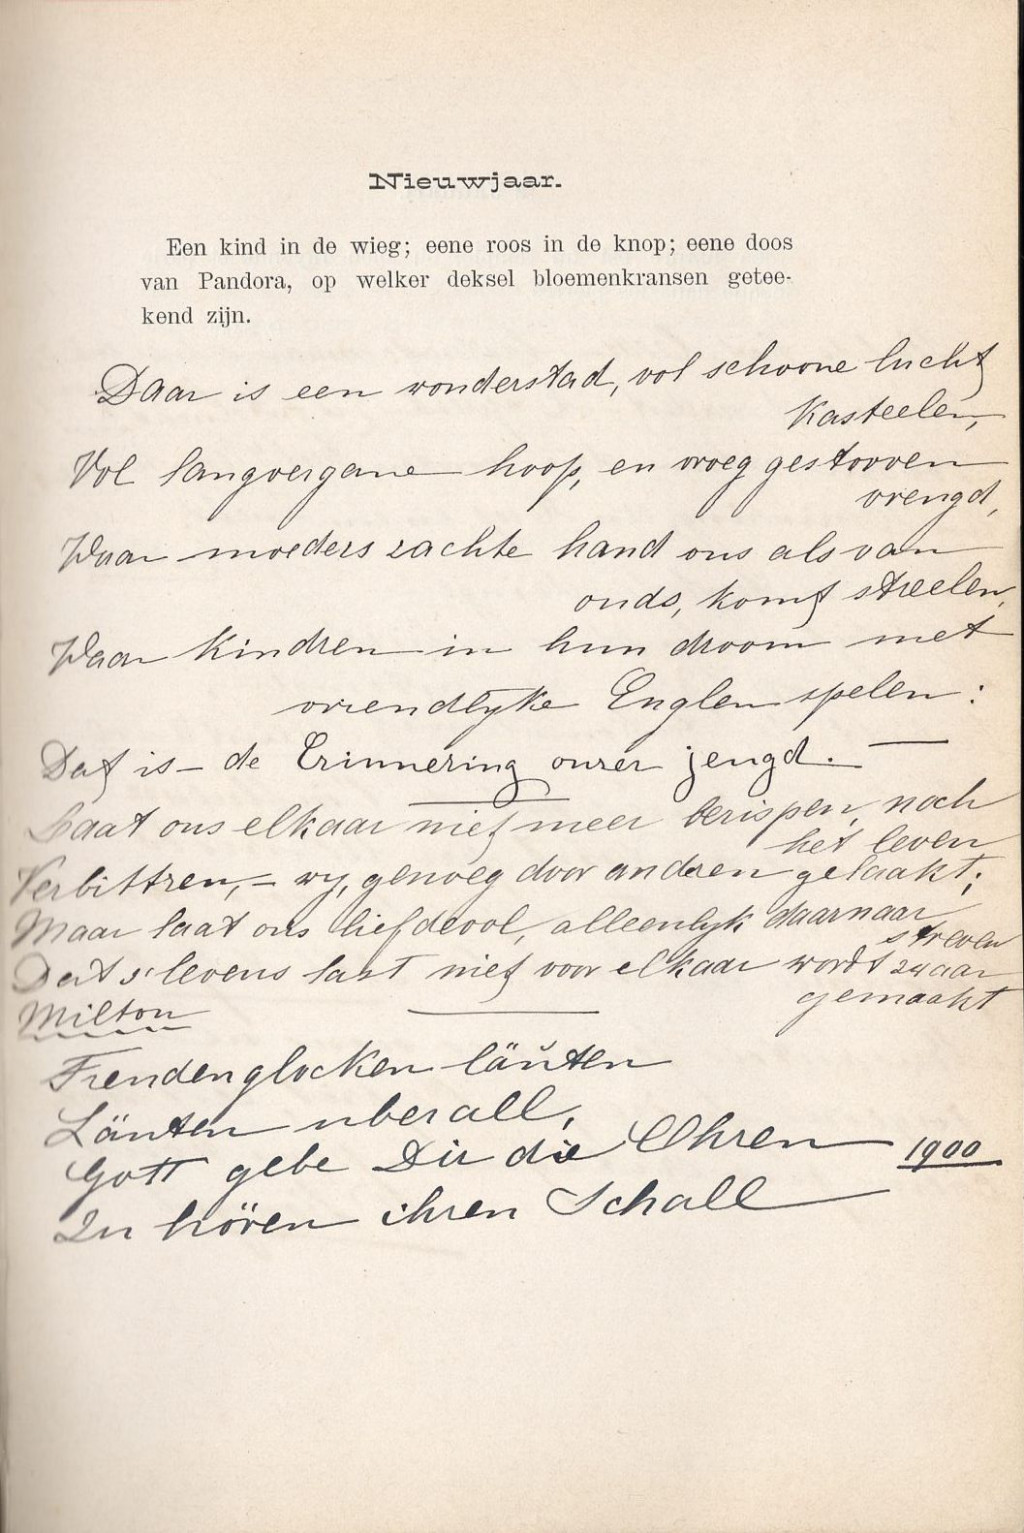 Nieuwjaar.
Een kind in de wieg; eene roos in de knop; eene doos
van Pandora, op welker deksel bloemenkransen getee-
kend zijn.
Daar is een wonderstad, vol schoone lucht
Kasteelen,
Vol langvergane hoop, en vroeg gestorven
vreugd,
Waar moeders zachte hand ons als van
ouds, komt streelen,
Waar Kindren in hun droom met
vriendlyke Englen spelen:
Dat is – de Erinnering onzer jeugd. —
Laat ons elkaar niet meer berispen, noch
het leven
Verbittren, – wy, genoeg door andren gelaakt;
Maar laat ons liefdevol, alleenlyk daarnaar
streven
Dat s'levens last niet voor elkaar wordt zwaar
gemaakt
Milton
Freudenglocken läuten
Läuten uberall,
Gott gebe Dir die Ohren
1900
Zu hören ihren Schall